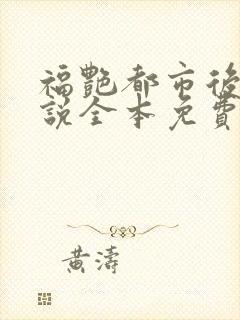 福艷都市後
說全本免費
黃濤